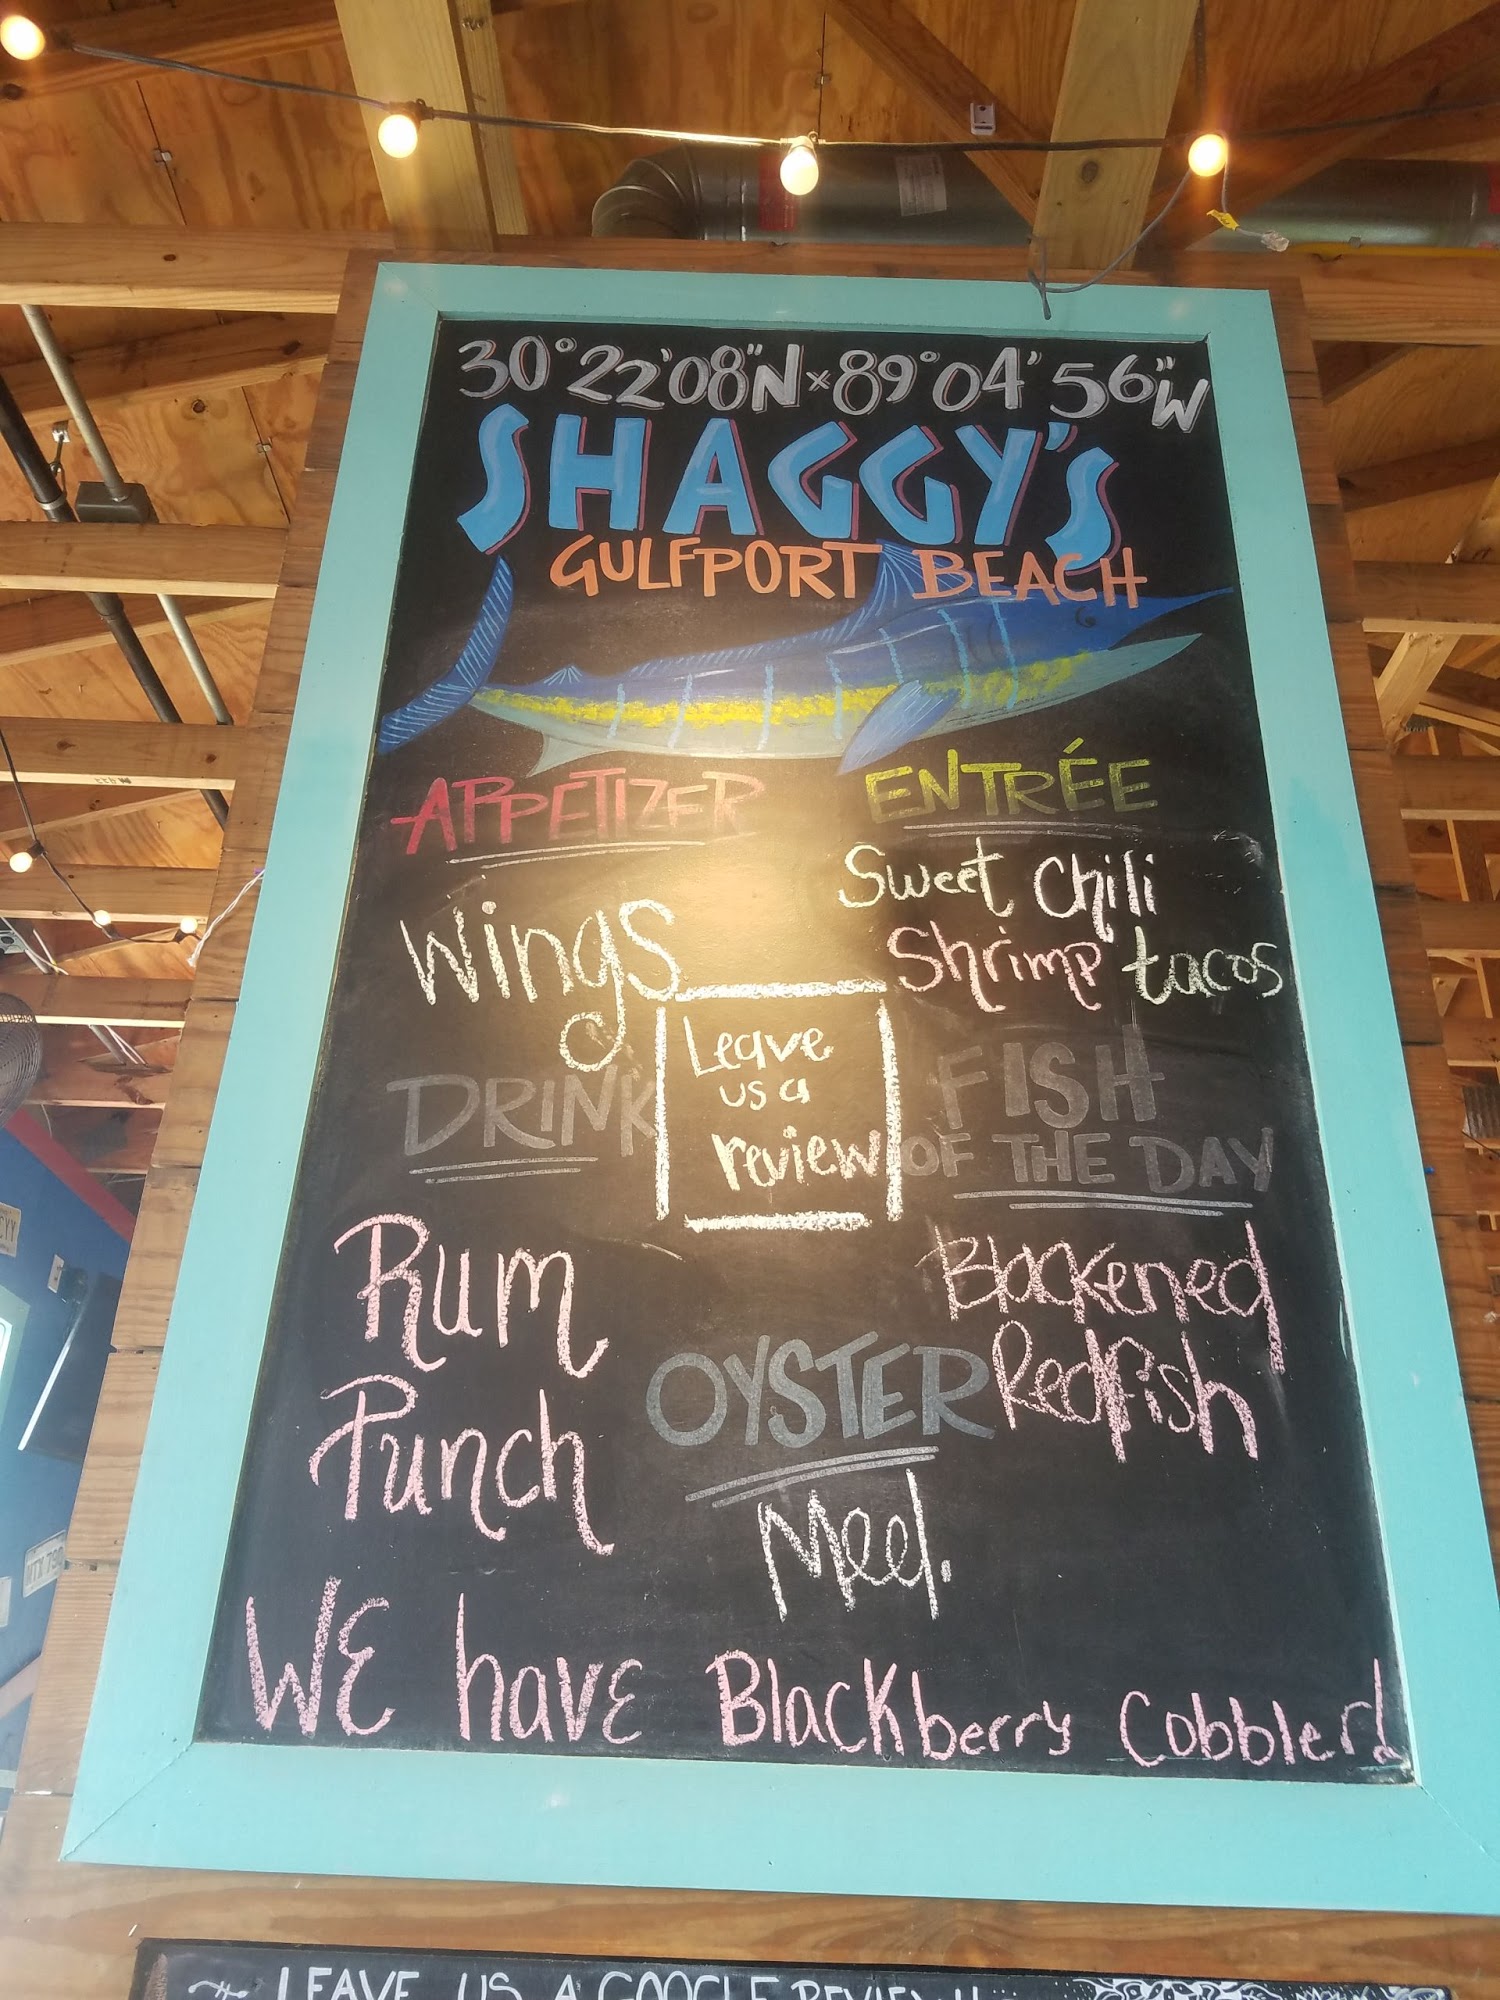 30°22'08"N × 89°04'56"W
SHAGGY'S
GULFPORT BEACH
APPETIZER
Wings
ENTRÉE
Sweet Chili
Shrimp tacos
Leave
us a
review
DRINK
Rum
Punch
FISH
OF THE DAY
Blackened
Redfish
OYSTER
WE have Blackberry Cobbler
LEAVE US A GOOGLE REVIEW!!